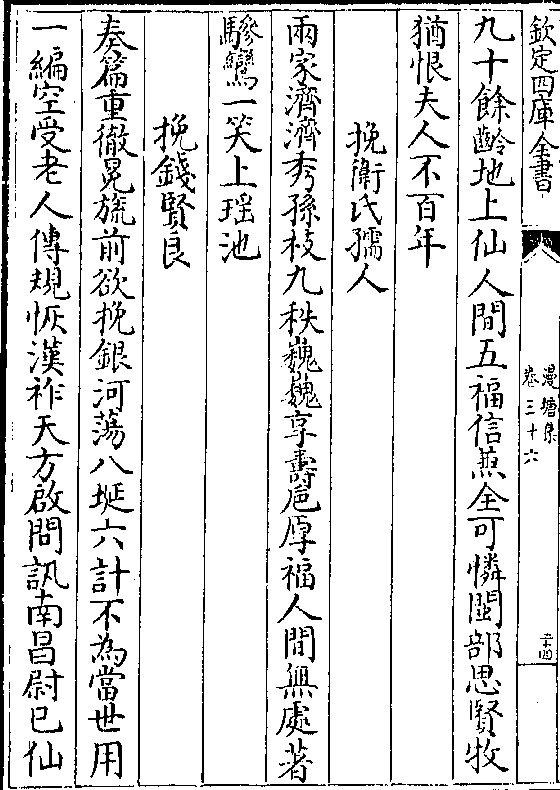 欽定四庫全書
漫塘集
卷三十六
二十四
九十餘齡地上仙人間五福信無全可憐閫部思賢牧
猶恨夫人不百年
挽衛氏孺人
兩家濟濟秀孫枝九秩巍巍享壽巵厚福人間無處著
驂鸞一笑上瑶池
挽錢賢良
奏篇重徹冕旒前欲挽銀河蕩八埏六計不為當世用
一編空受老人傳規恢漢祚天方啟問訊南昌尉已仙